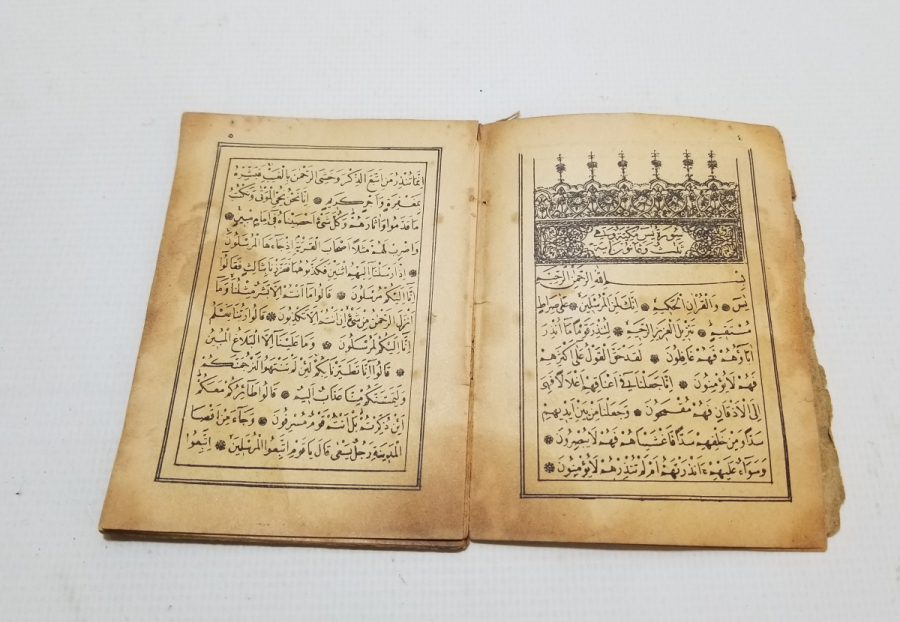 ٤
سورة يس مكية وهي
ثلث وثمانون آية
بسم الله الرحمن الرحيم
يس ❁ وَالْقُرْاٰنِ الْحَكِيمِ ❁ اِنَّكَ لَمِنَ الْمُرْسَلِينَ ❁ عَلٰى صِرَاطٍ
مُسْتَقِيمٍ ❁ تَنْزِيلَ الْعَزِيزِ الرَّحِيمِ ❁ لِتُنْذِرَ قَوْمًا مَا اُنْذِرَ
اٰبَاؤُهُمْ فَهُمْ غَافِلُونَ ❁ لَقَدْ حَقَّ الْقَوْلُ عَلٰى اَكْثَرِهِمْ
فَهُمْ لَا يُؤْمِنُونَ ❁ اِنَّا جَعَلْنَا فِي اَعْنَاقِهِمْ اَغْلَالًا فَهِيَ
اِلَى الْاَذْقَانِ فَهُمْ مُقْمَحُونَ ❁ وَجَعَلْنَا مِنْ بَيْنِ اَيْدِيهِمْ
سَدًّا وَمِنْ خَلْفِهِمْ سَدًّا فَاَغْشَيْنَاهُمْ فَهُمْ لَا يُبْصِرُونَ ❁
وَسَوَاءٌ عَلَيْهِمْ ءَاَنْذَرْتَهُمْ اَمْ لَمْ تُنْذِرْهُمْ لَا يُؤْمِنُونَ ❁
٥
اِنَّمَا تُنْذِرُ مَنِ اتَّبَعَ الذِّكْرَ وَخَشِيَ الرَّحْمٰنَ بِالْغَيْبِ فَبَشِّرْهُ
بِمَغْفِرَةٍ وَاَجْرٍ كَرِيمٍ ❁ اِنَّا نَحْنُ نُحْيِ الْمَوْتٰى وَنَكْتُبُ
مَا قَدَّمُوا وَاٰثَارَهُمْ وَكُلَّ شَيْءٍ اَحْصَيْنَاهُ فِي اِمَامٍ مُبِينٍ ❁
وَاضْرِبْ لَهُمْ مَثَلًا اَصْحَابَ الْقَرْيَةِ اِذْ جَاءَهَا الْمُرْسَلُونَ
❁ اِذْ اَرْسَلْنَا اِلَيْهِمُ اثْنَيْنِ فَكَذَّبُوهُمَا فَعَزَّزْنَا بِثَالِثٍ فَقَالُوا
اِنَّا اِلَيْكُمْ مُرْسَلُونَ ❁ قَالُوا مَا اَنْتُمْ اِلَّا بَشَرٌ مِثْلُنَا وَمَا
اَنْزَلَ الرَّحْمٰنُ مِنْ شَيْءٍ اِنْ اَنْتُمْ اِلَّا تَكْذِبُونَ ❁ قَالُوا رَبُّنَا يَعْلَمُ
اِنَّا اِلَيْكُمْ لَمُرْسَلُونَ ❁ وَمَا عَلَيْنَا اِلَّا الْبَلَاغُ الْمُبِينُ
❁ قَالُوا اِنَّا تَطَيَّرْنَا بِكُمْ لَئِنْ لَمْ تَنْتَهُوا لَنَرْجُمَنَّكُمْ
وَلَيَمَسَّنَّكُمْ مِنَّا عَذَابٌ اَلِيمٌ ❁ قَالُوا طَائِرُكُمْ مَعَكُمْ
اَئِنْ ذُكِّرْتُمْ بَلْ اَنْتُمْ قَوْمٌ مُسْرِفُونَ ❁ وَجَاءَ مِنْ اَقْصَا
الْمَدِينَةِ رَجُلٌ يَسْعٰى قَالَ يَا قَوْمِ اتَّبِعُوا الْمُرْسَلِينَ ❁ اِتَّبِعُوا